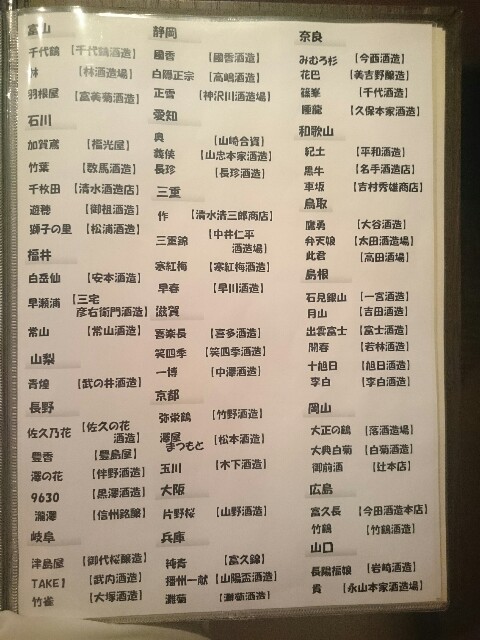 富山
千代鶴 【千代鶴酒造】
林 【林酒造場】
羽根屋 【富美菊酒造】
石川
加賀鳶 【福光屋】
竹葉 【数馬酒造】
千枚田 【清水酒造店】
遊穂 【御祖酒造】
獅子の里 【松浦酒造】
福井
白岳仙 【安本酒造】
早瀬浦 【三宅
彦右衛門酒造】
常山 【常山酒造】
山梨
青煌 【武の井酒造】
長野
佐久乃花 【佐久の花
酒造】
豊香 【豊島屋】
澤の花 【伴野酒造】
9630 【黒澤酒造】
瀧澤 【信州銘醸】
岐阜
津島屋 【御代桜醸造】
TAKE1 【武内酒造】
竹雀 【大塚酒造】
静岡
國香 【國香酒造】
白隠正宗 【高嶋酒造】
正雪 【神沢川酒造場】
愛知
奥 【山崎合資】
義侠 【山忠本家酒造】
長珍 【長珍酒造】
三重
作 【清水清三郎商店】
三重錦 【中井仁平
酒造場】
寒紅梅 【寒紅梅酒造】
早春 【早川酒造】
滋賀
喜楽長 【喜多酒造】
笑四季 【笑四季酒造】
一博 【中澤酒造】
京都
弥栄鶴 【竹野酒造】
澤屋
まつもと 【松本酒造】
玉川 【木下酒造】
大阪
片野桜 【山野酒造】
兵庫
純青 【富久錦】
播州一献 【山陽盃酒造】
灘菊 【灘菊酒造】
奈良
みむろ杉 【今西酒造】
花巴 【美吉野醸造】
篠峯 【千代酒造】
睡龍 【久保本家酒造】
和歌山
紀土 【平和酒造】
黒牛 【名手酒造店】
車坂 【吉村秀雄商店】
鳥取
鷹勇 【大谷酒造】
弁天娘 【太田酒造場】
此君 【高田酒場】
島根
石見銀山 【一宮酒造】
月山 【吉田酒造】
出雲富士 【富士酒造】
開春 【若林酒造】
十旭日 【旭日酒造】
李白 【李白酒造】
岡山
大正の鶴 【落酒造場】
大典白菊 【白菊酒造】
御前酒 【辻本店】
広島
富久長 【今田酒造本店】
竹鶴 【竹鶴酒造】
山口
長陽福娘 【岩崎酒造】
貴 【永山本家酒造場】